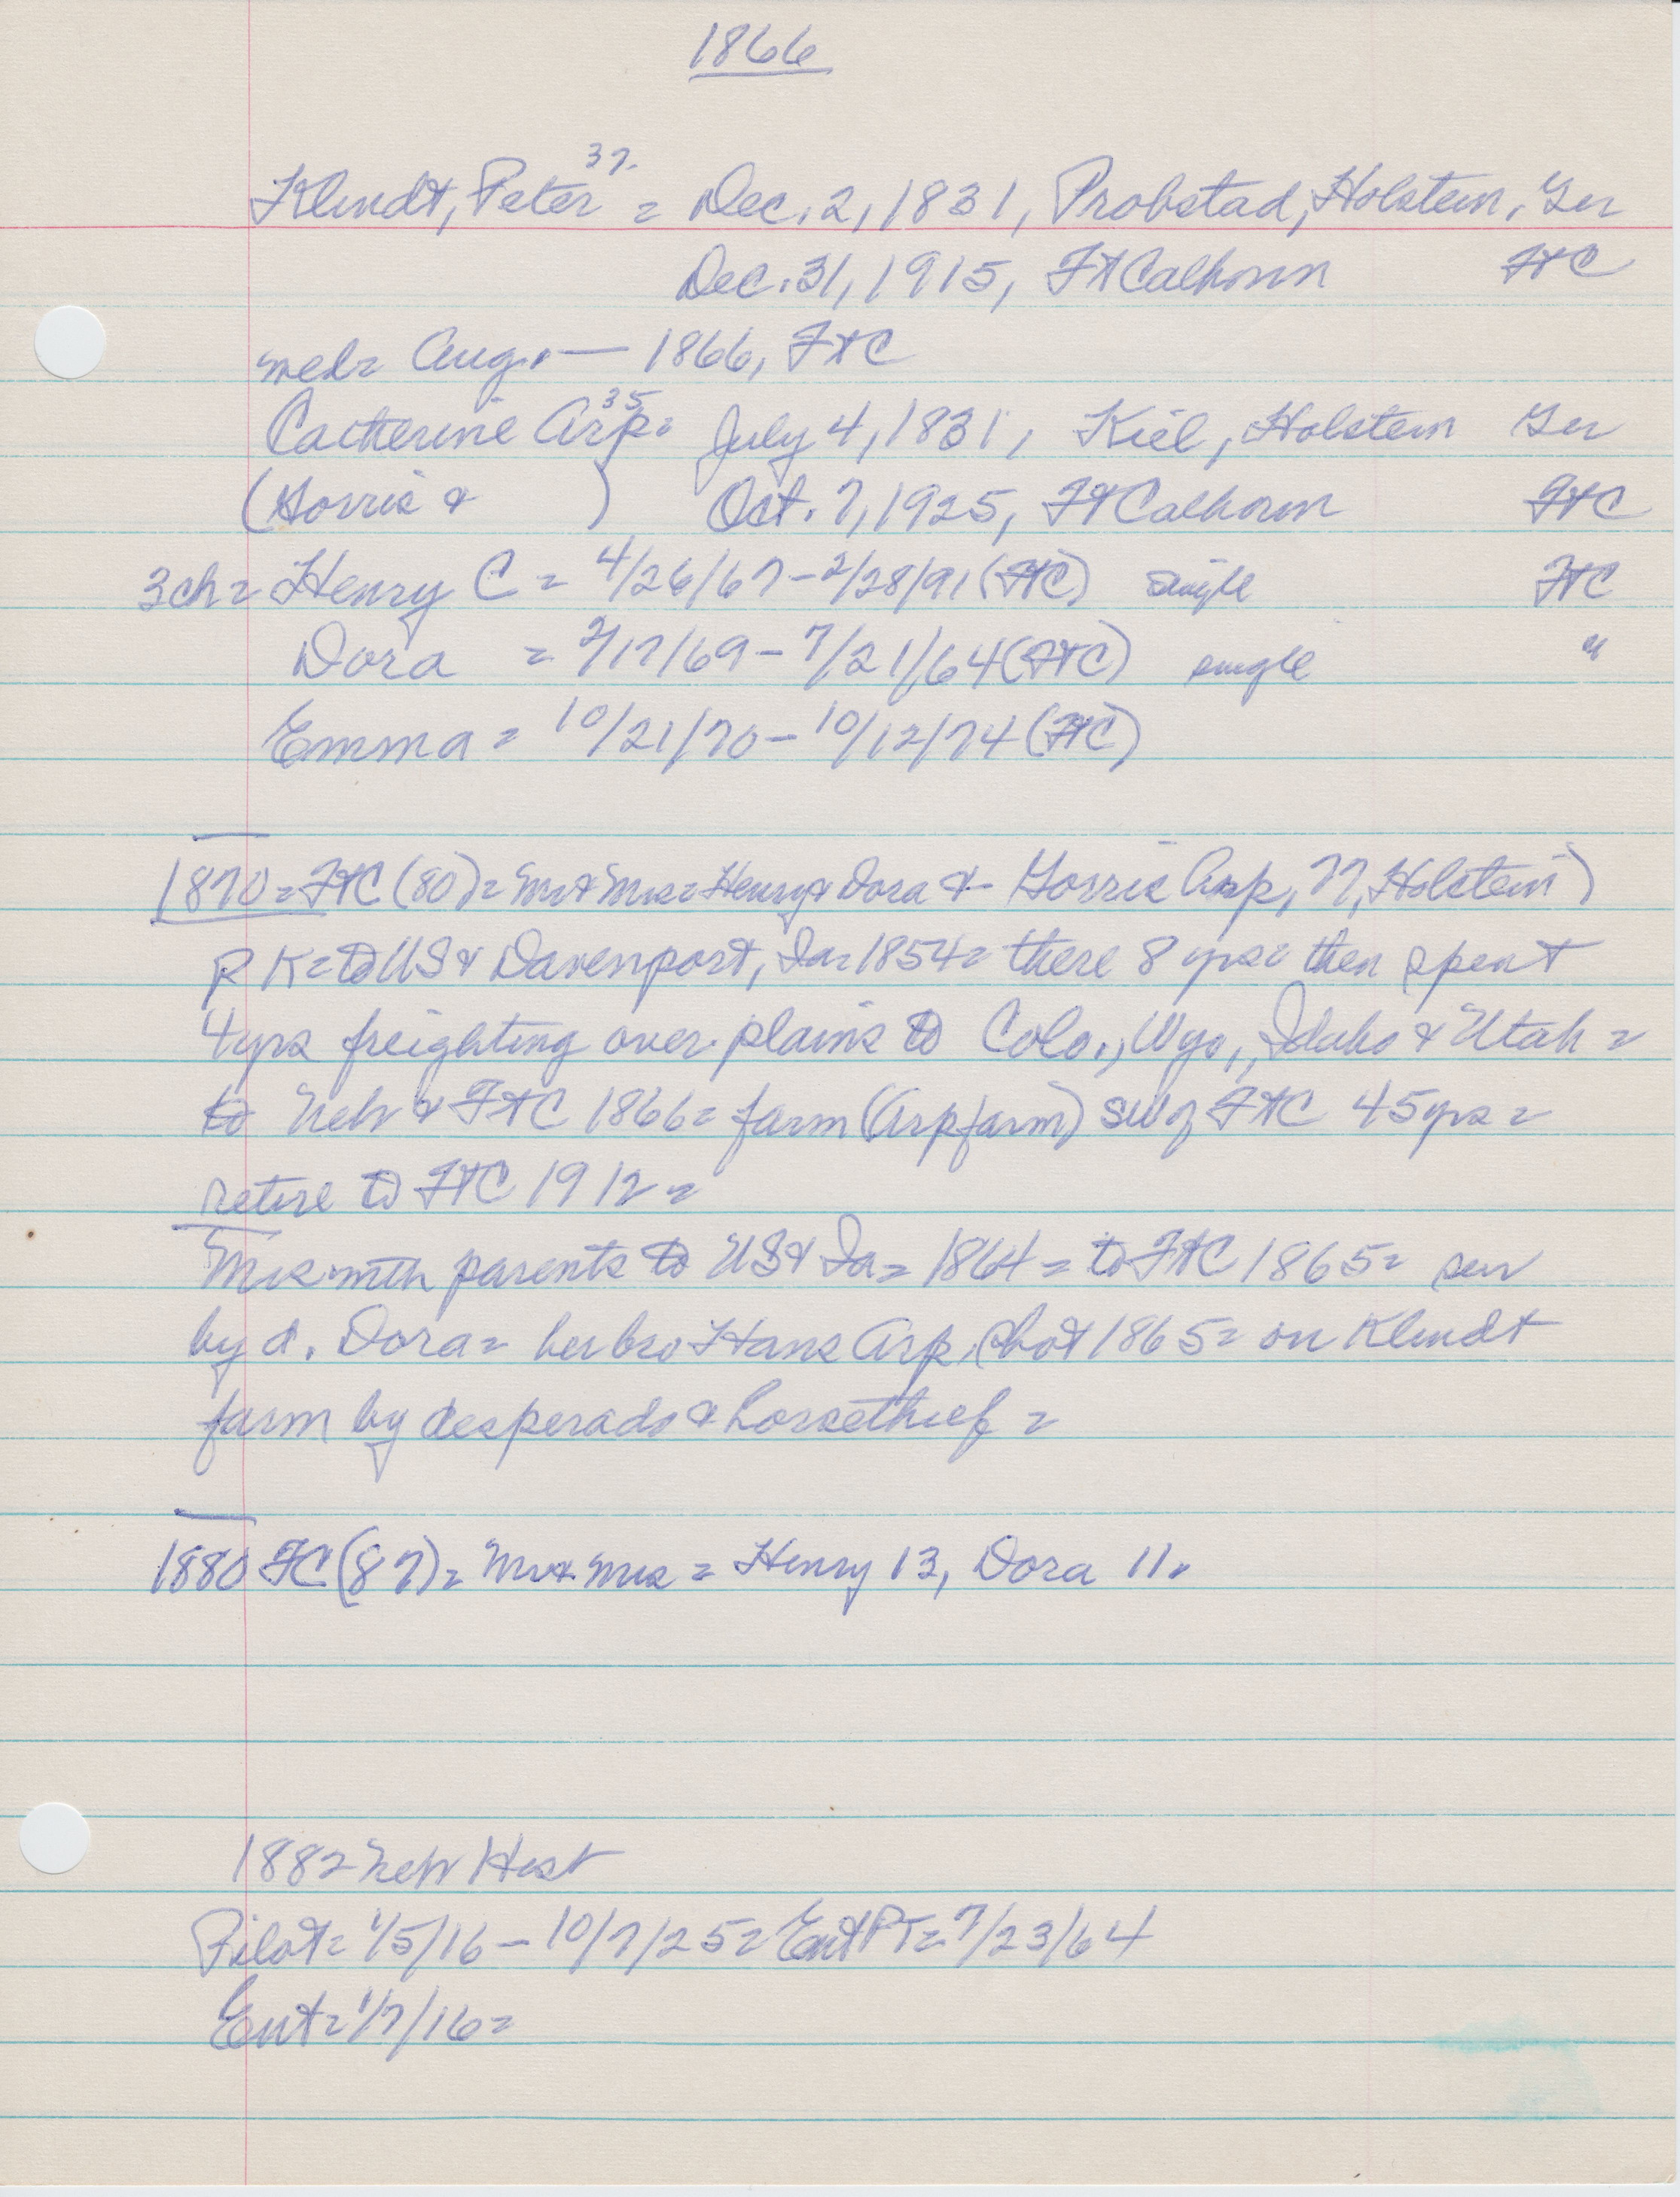 1866
37
Klindt, Peter = Dec. 2, 1831, Probstad, Holstein, Ger
Dec. 31, 1915, Ft Calhoun FtC
md = Aug. — 1866, FtC
35
Catherine Arp = July 4, 1831, Kiel, Holstein Ger
(Gorris & ) Oct. 7, 1925, Ft Calhoun FtC
3ch = Henry C = 4/26/67 - 2/28/91 (FtC) single FtC
Dora = 2/17/69 - 7/21/64 (FtC) single "
Emma = 10/21/70 - 10/12/74 (FtC)
1870 = FtC (80) = Mr & Mrs = Henry & Dora & Gorris Arp, 77, Holstein)
P K = to US & Davenport, Ia = 1854 = there 8 yrs = then spent
4 yrs freighting over plains to Colo., Wyo., Idaho & Utah =
to Nebr & FtC 1866 = farm (Arp farm) SW of FtC 45 yrs =
retire to FtC 1912 =
Mrs with parents to US & Ia = 1864 = to FtC 1865 = sur
by d. Dora = her bro Hans Arp, shot 1865 = on Klindt
farm by desperado & horsethief =
1880 FC (87) = Mr & Mrs = Henry 13, Dora 11.
1882 Nebr Hist
Pilot = 1/5/16 - 10/7/25 = Ent PT = 7/23/64
Ent = 1/7/16 =